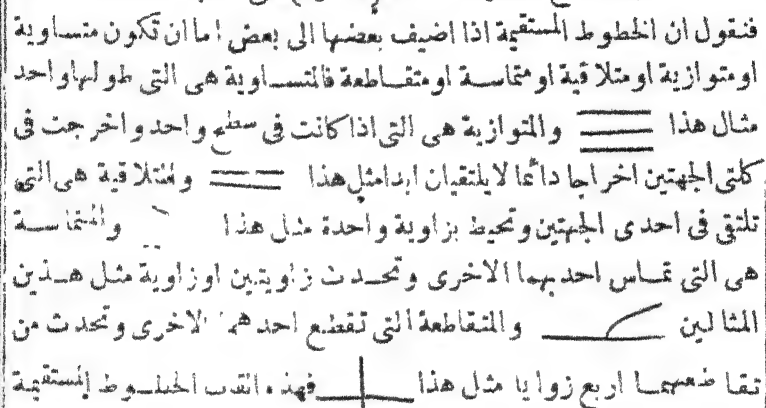 فنقول ان الخطوط المستقيمة اذا اضيف بعضها الى بعض اما ان تكون متساوية
او متوازية او متلاقية او متماسة او متقاطعة فالمتساوية هى التى طولها واحد
مثال هذا والمتوازية هى التى اذا كانت فى سطح واحد واخرجت فى
كلتى الجهتين اخراجا دائما لا يلتقيان ابدا مثل هذا والمتلاقية هى التى
تلتقى فى احدى الجهتين وتحيط بزاوية واحدة مثل هذا والمتماسة
هى التى تماس احديهما الاخرى وتحدث زاويتين او زاوية مثل هذين
المثالين والمتقاطعة التى تقطع احدهما الاخرى وتحدث من
تقاطعهما اربع زوايا مثل هذا فهذه القاب الخطوط المستقيمة